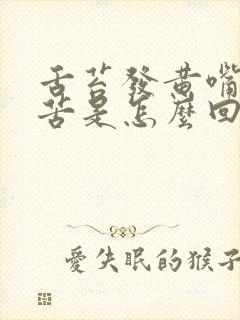 舌苔發黄嘴
苦是怎麼回
愛失眠的猴子